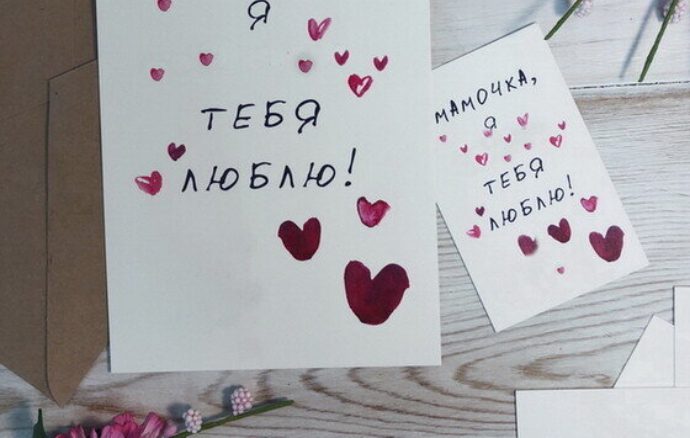 Я
ТЕБЯ
ЛЮБЛЮ!
МАМОЧКА,
Я
ТЕБЯ
ЛЮБЛЮ!